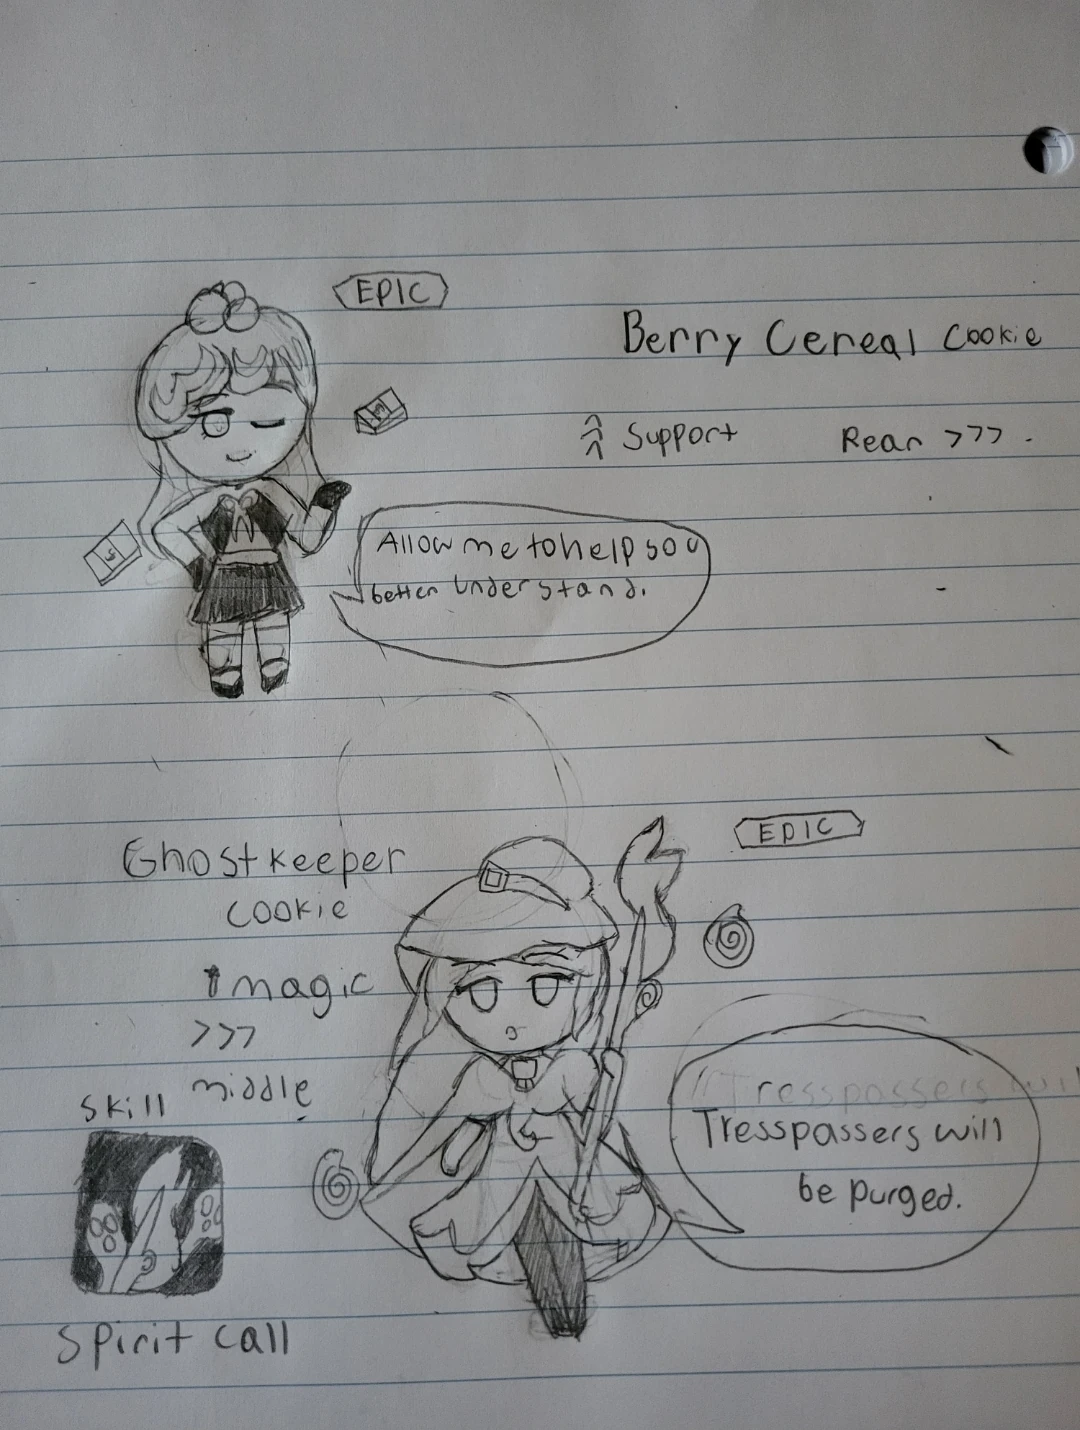 EPIC
Berry Cereal Cookie
Support
Rear >>>
Allow me to help you
better understand.
EPIC
Ghostkeeper
cookie
magic
>>>
middle
Skill
"Tresspassers wil
Tresspassers will
be purged.
Spirit call